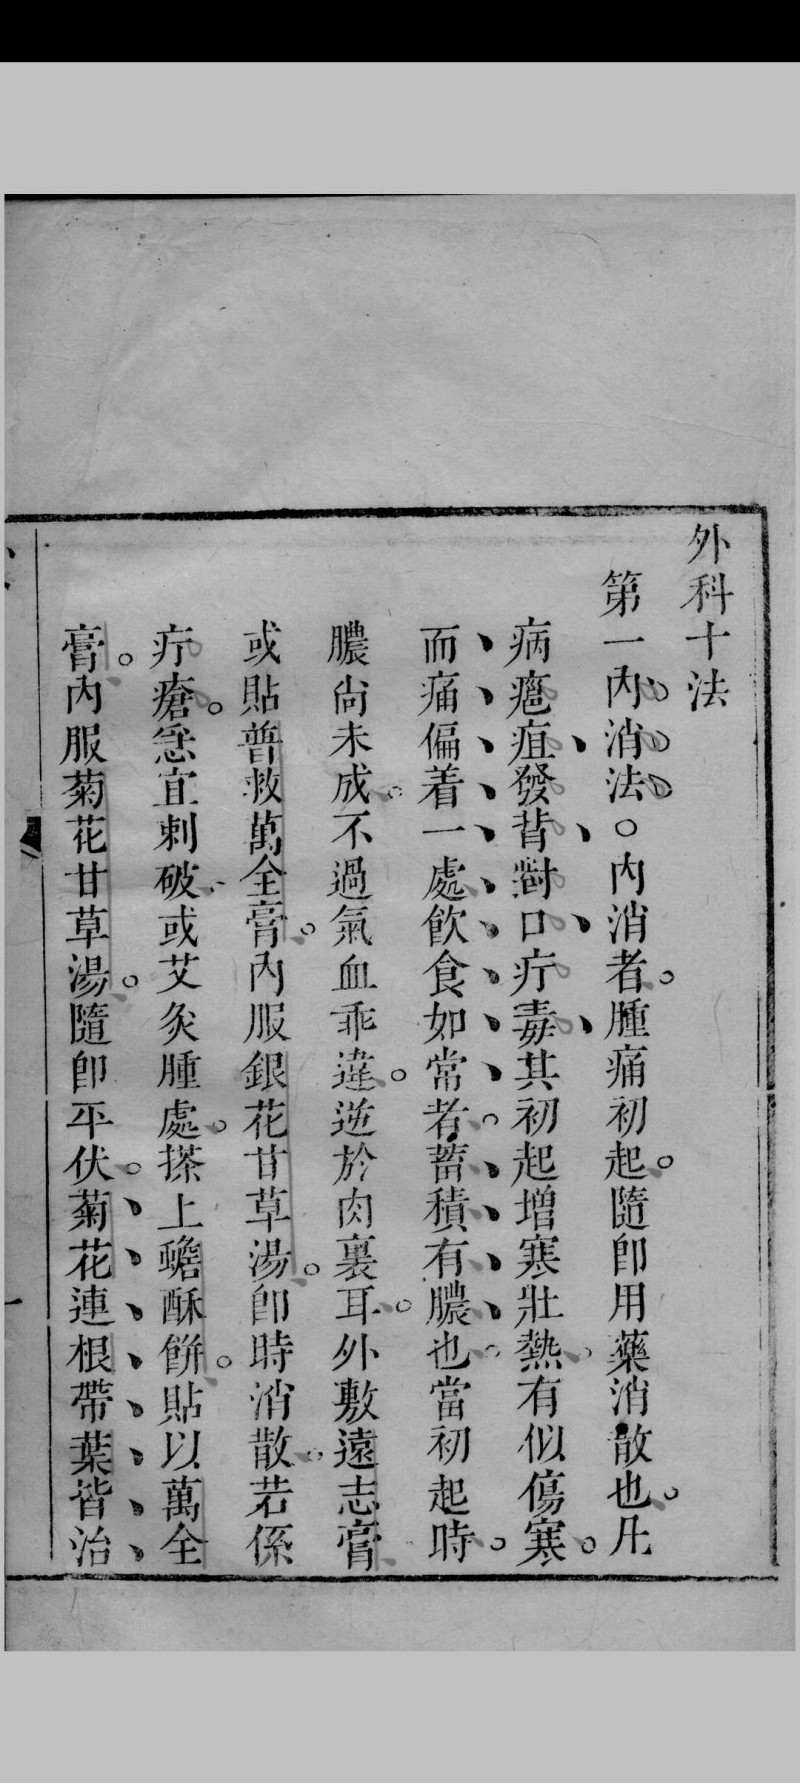 外科十法
第一內消法○內消者腫痛初起隨卽用藥消散也凡
病癰疽發背對口疔毒其初起增寒壯熱有似傷寒
而痛偏着一處飲食如常者蓄積有膿也當初起時
膿尙未成不過氣血乖違逆於肉裏耳外敷遠志膏
或貼普救萬全膏內服銀花甘草湯卽時消散若係
疔瘡急宜刺破或艾灸腫處搽上蟾酥餅貼以萬全
膏內服菊花甘草湯隨卽平伏菊花連根帶葉皆治
一